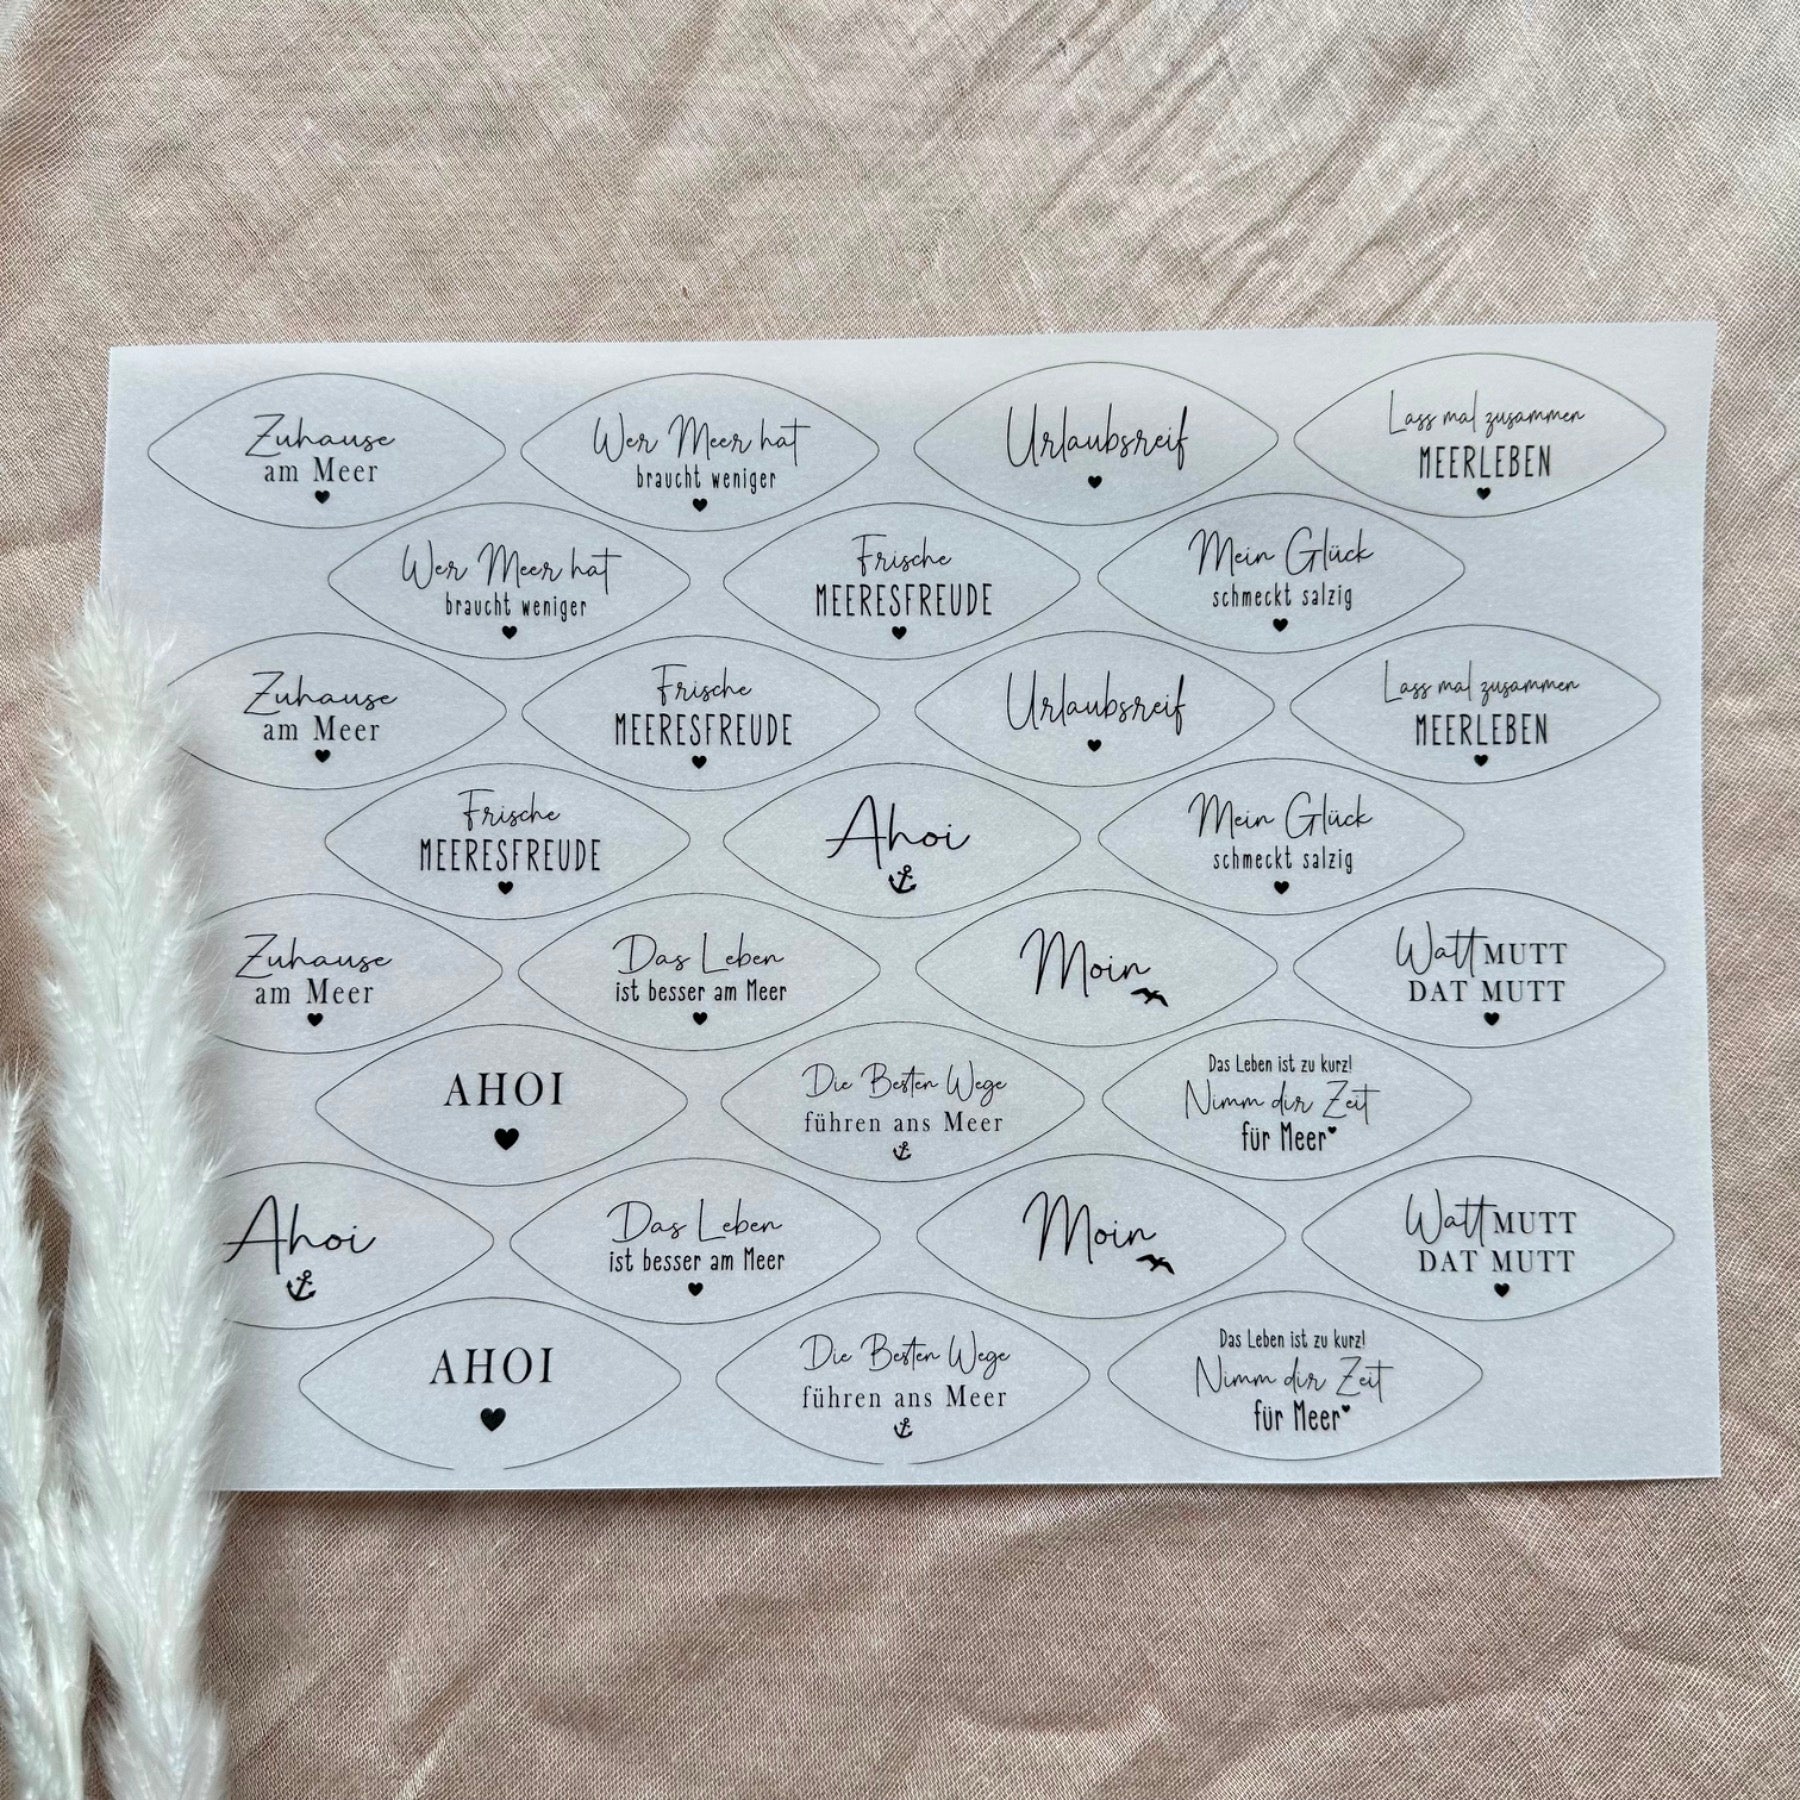 Zuhause
am Meer
Wer Meer hat
braucht weniger
Urlaubsreif
Lass mal zusammen
MEERLEBEN
Wer Meer hat
braucht weniger
Frische
MEERESFREUDE
Mein Glück
schmeckt salzig
Zuhause
am Meer
Frische
MEERESFREUDE
Urlaubsreif
Lass mal zusammen
MEERLEBEN
Frische
MEERESFREUDE
Ahoi
Mein Glück
schmeckt salzig
Zuhause
am Meer
Das Leben
ist besser am Meer
Moin
Watt MUTT
DAT MUTT
AHOI
Die Besten Wege
führen ans Meer
Das Leben ist zu kurz!
Nimm dir Zeit
für Meer
Ahoi
Das Leben
ist besser am Meer
Moin
Watt MUTT
DAT MUTT
AHOI
Die Besten Wege
führen ans Meer
Das Leben ist zu kurz!
Nimm dir Zeit
für Meer